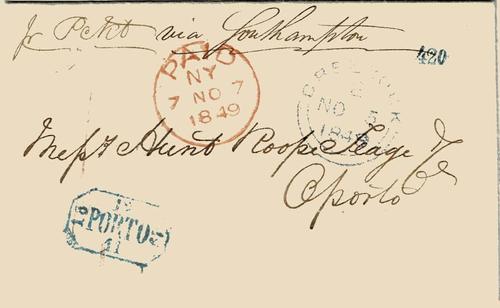 pr Pkt via Southampton
420
PAID
NY
7 NO 7
1849
NO 5
1849
Messrs Hunt Roope Teage & Co
Oporto
PORTO